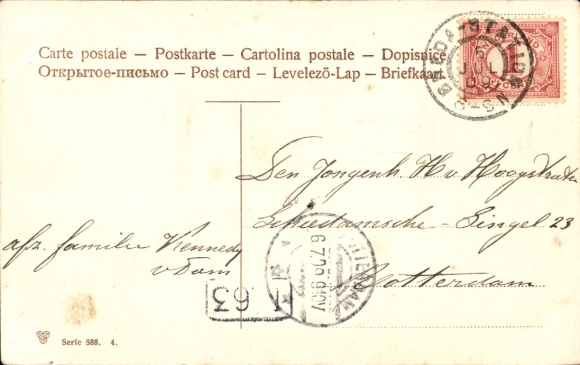 Carte postale – Postkarte – Cartolina postale – Dopisnice
Открытое-письмо – Post card – Levelezö-Lap – Briefkaart
BREDA-STATION
JUL
09
1
Den Jongenh. H. v. Hoogstraten
Schiedamsche-Singel 23
Rotterdam
afz. familie Kennedy
v Dam
6.7.09
63
Serie 588. 4.